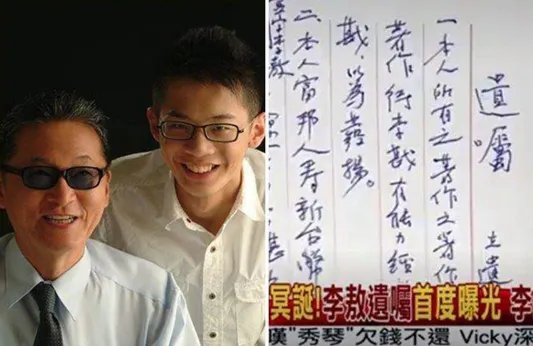 遺囑 立遺
一、本人所有之著作之著作
著作 李戡有能力經
戡，以為發揚。
二、本人富邦人壽新台幣
李敖
冥誕!李敖遺囑首度曝光 李
嘆"秀琴"欠錢不還 Vicky深